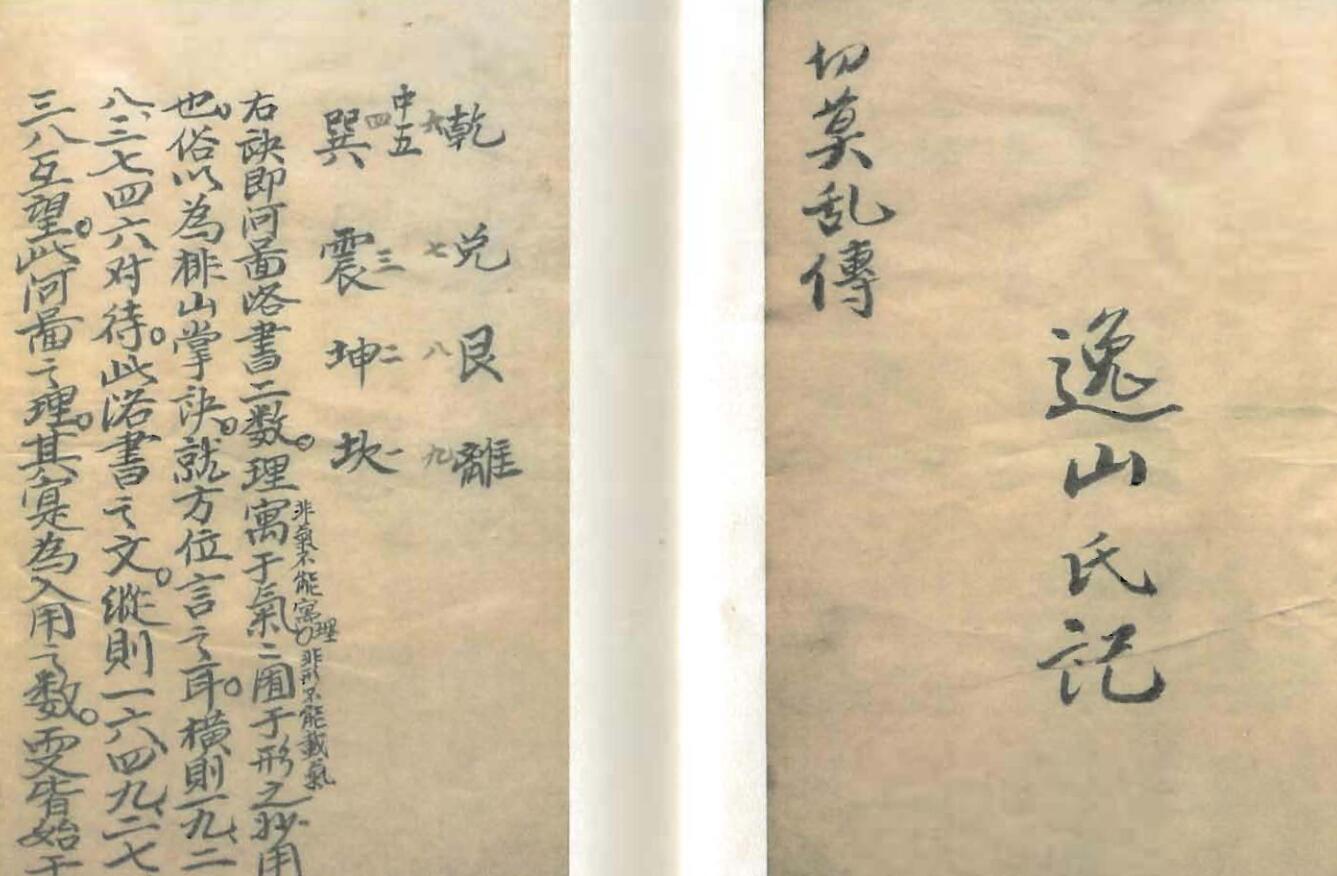 切莫乱傳
逸山氏記
乾 兌 艮 離
六 七 八 九
中五
四 三 二 一
巽 震 坤 坎
右訣即河圖洛書二数。理寓于氣二囿于形之妙用
非氣不能寓理。非形不能載氣
也。俗以為排山掌訣。就方位言之耳。横則一九、二
八、三七四六对待。此洛書之文。縱則一六、四九、二七
三八互望。此河圖之理。其寔為入用之数。要皆始于